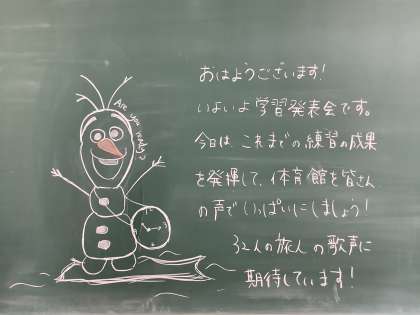 Are you ready?
おはようございます!
いよいよ学習発表会です。
今日は、これまでの練習の成果
を発揮して、体育館を皆さん
の声でいっぱいにしましょう!
32人の旅人の歌声に
期待しています!